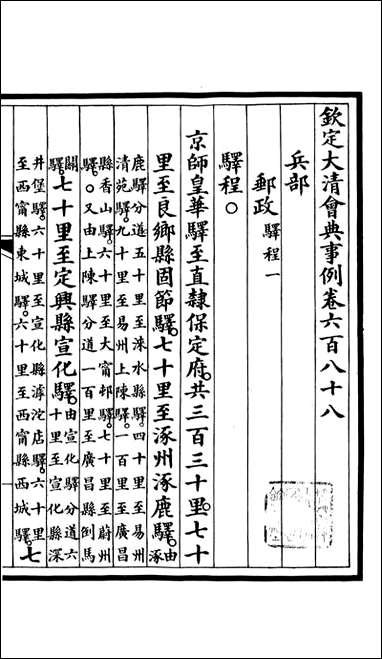 欽定大清會典事例卷六百八十八
兵部
郵政驛程一
驛程○
京師皇華驛至直隸保定府共三百三十里七十
里至良鄉縣固節驛七十里至涿州涿鹿驛由涿
鹿驛分道五十里至淶水縣驛四十里至易州
清苑驛九十里至易州上陳驛一百里至廣昌
縣香山驛六十里至大甯邨驛七十里至蔚州
驛○又由上陳驛分道一百里至廣昌縣倒馬
關驛七十里至定興縣宣化驛由宣化驛分道六十里至宣化縣深
井堡驛六十里至宣化縣滹沱店驛六十里
至西甯縣東城驛六十里至西甯縣西城驛七